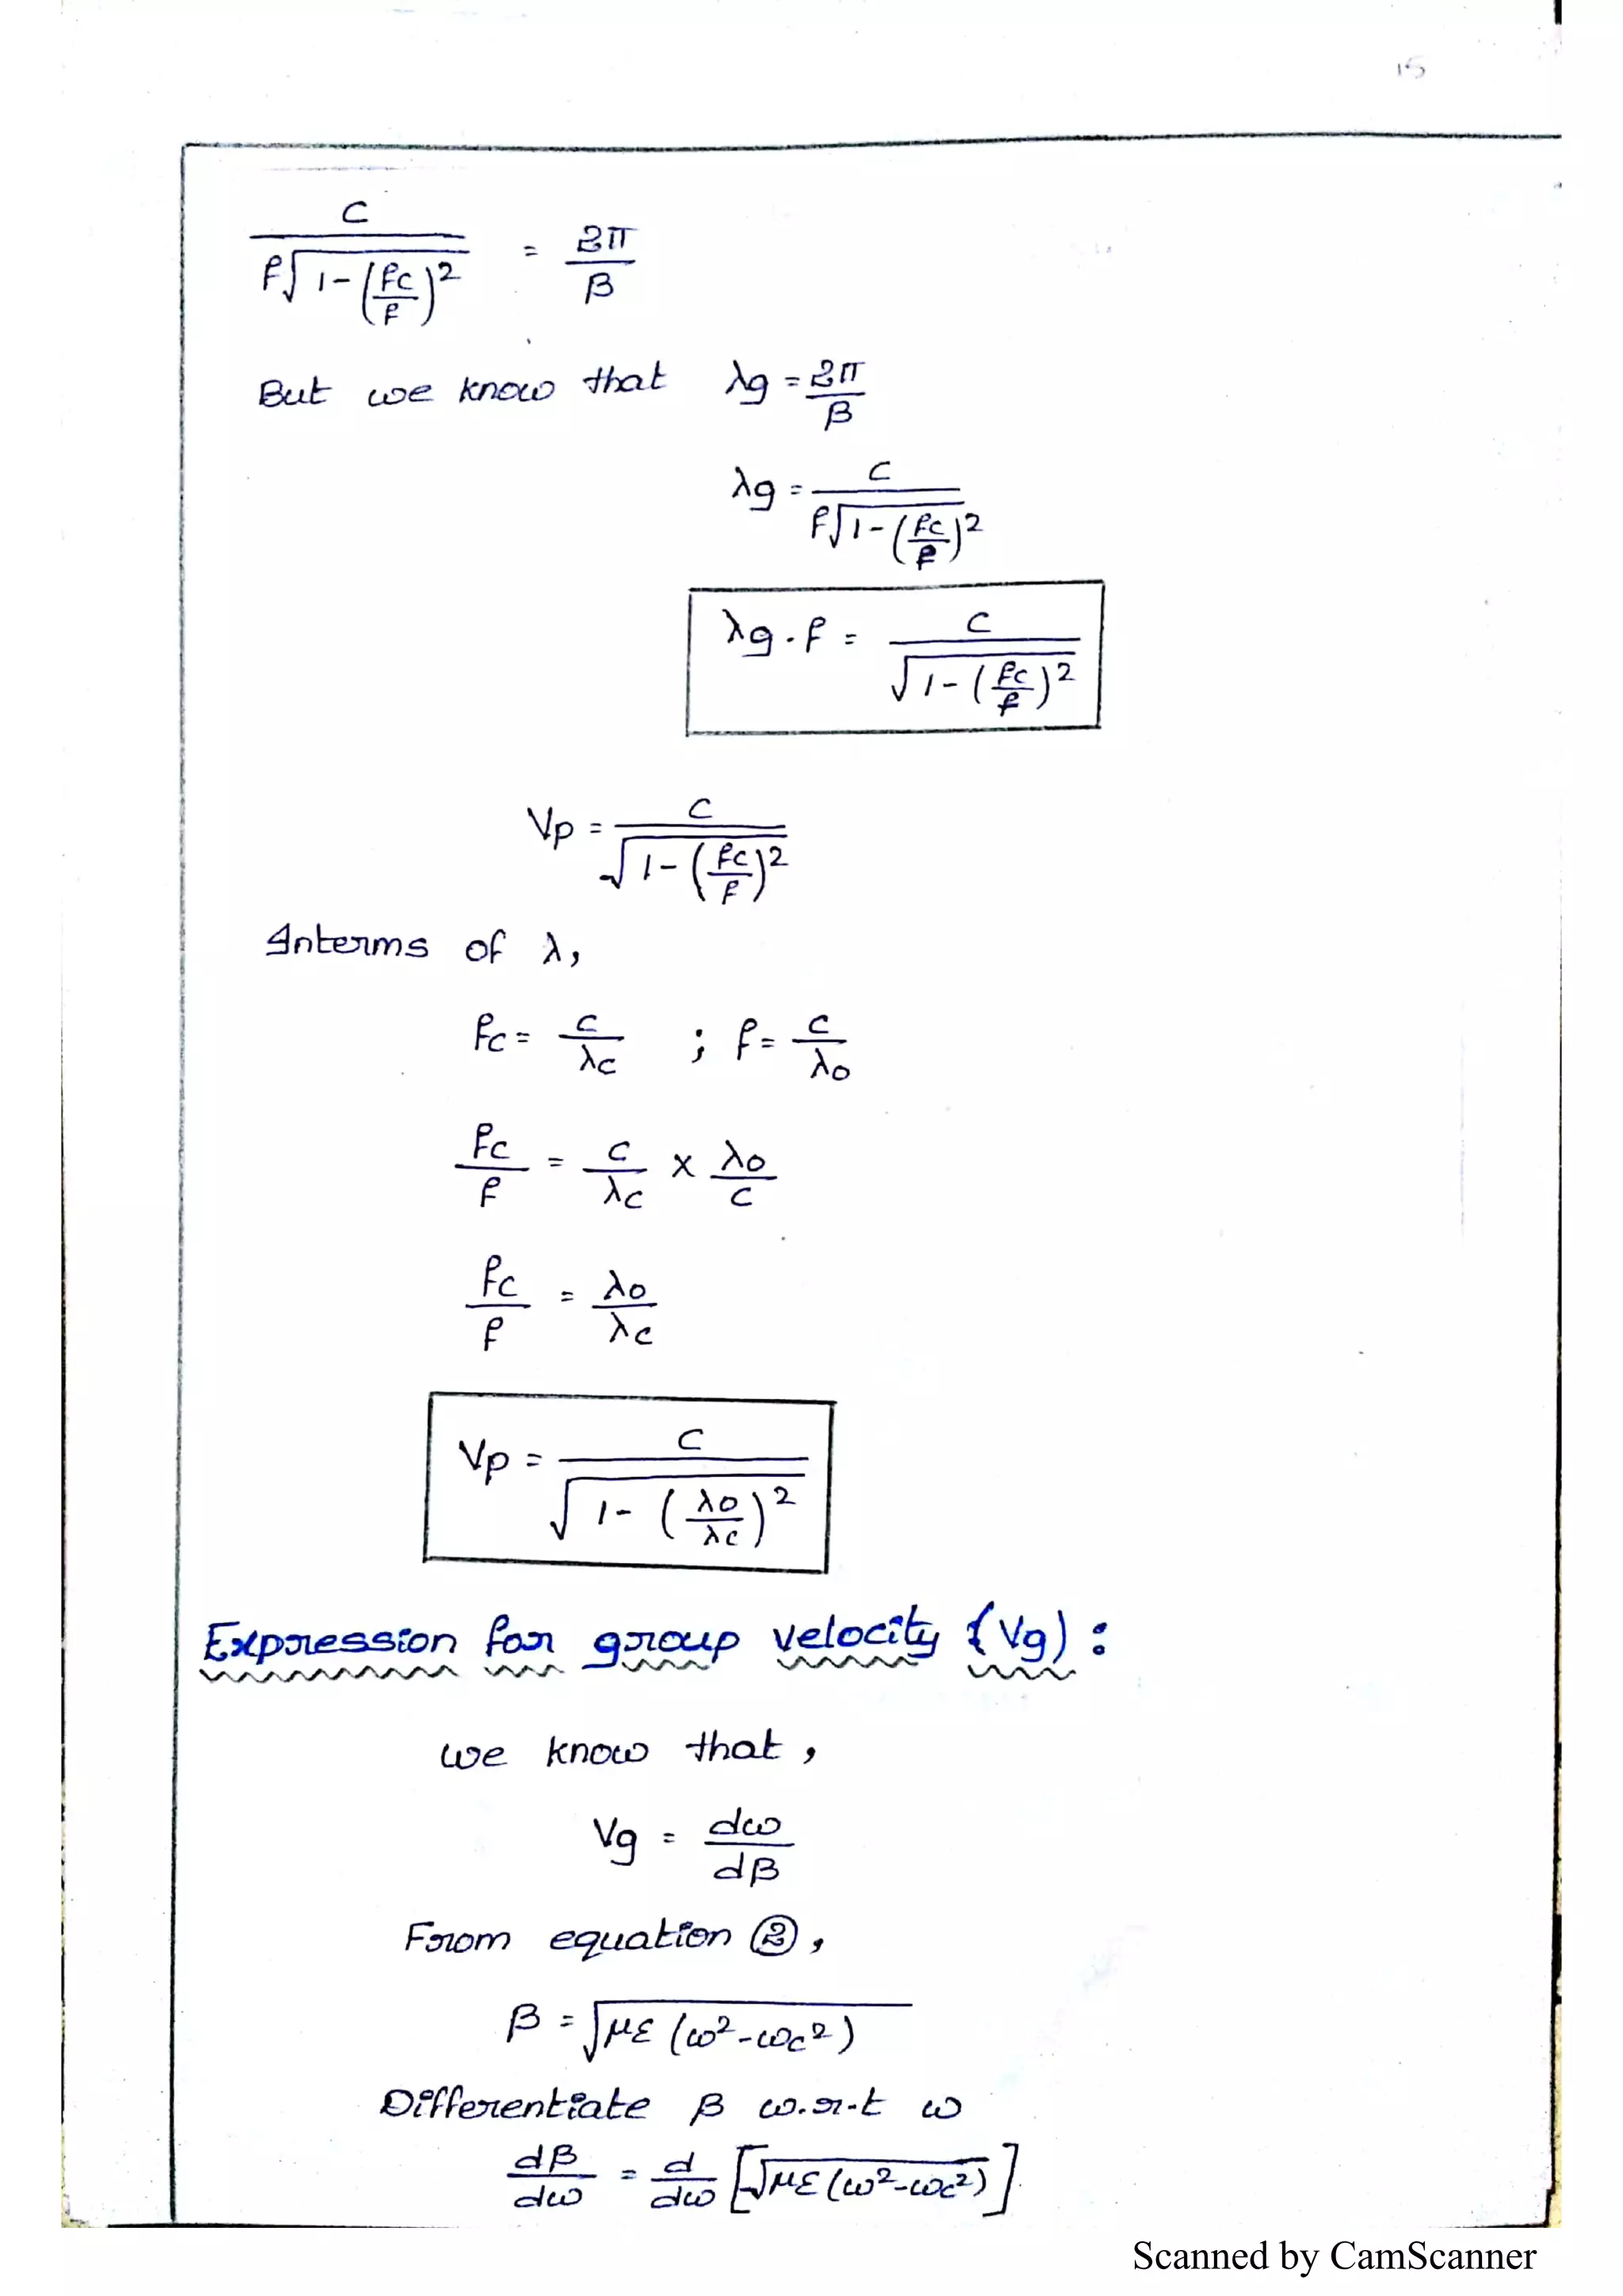 15
c / (f√(1-(fc/f)²)) = 2π/β
But we know that λg = 2π/β
λg = c / (f√(1-(fc/f)²))
λg.f = c / √(1-(fc/f)²)
Vp = c / √(1-(fc/f)²)
Interms of λ,
fc = c/λc ; f = c/λo
fc/f = c/λc × λo/c
fc/f = λo/λc
Vp = c / √(1-(λo/λc)²)
Expression for group velocity {Vg) :
we know that,
Vg = dω/dβ
From equation ②,
β = √(με(ω²-ωc²))
Differentiate β w.r.t ω
dβ/dω = d/dω [√(με(ω²-ωc²))]
Scanned by CamScanner